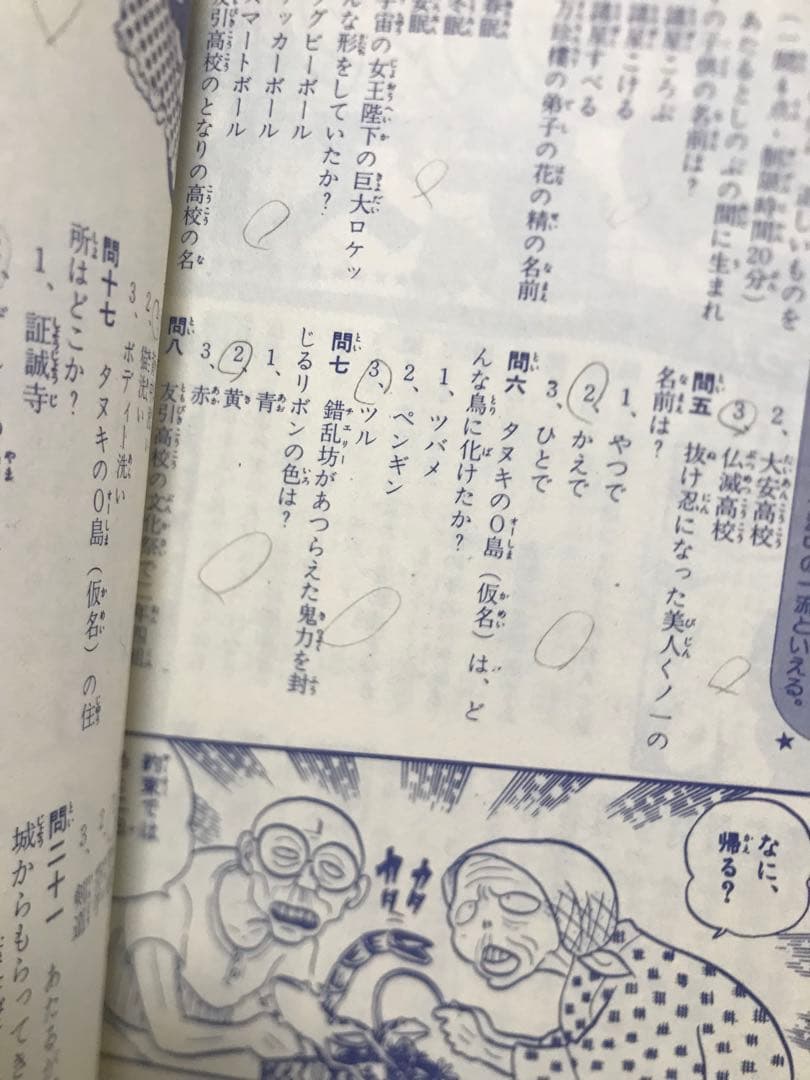 しいものを
（一問4点・制限時間20分）
あたるとしのぶの間に生まれ
の子供の名前は？
諸星ころぶ
諸星こける
諸星すべる
の弟子の花の精の名前
春眠
冬眠
安眠
宇宙の女王陛下の巨大ロケッ
んな形をしていたか？
グビーボール
ッカーボール
スマートボール
友引高校のとなりの高校の名
2、大安高校
3、仏滅高校
問五　抜け忍になった美人くノ一の
名前は？
1、やつで
2、かえで
3、ひとで
問六　タヌキのO島（仮名）は、ど
んな鳥に化けたか？
1、ツバメ
2、ペンギン
3、ツル
問七　錯乱坊があつらえた鬼力を封
じるリボンの色は？
1、青
2、黄
3、赤
問八　友引高校の文化祭で
の一流といえる。
★
なに、
帰る？
カタ
カタ
約束では
2、猫洗い
3、ボディー洗い
問十七　タヌキのO島（仮名）の住
所はどこか？
1、証誠寺
2、
3、
問二十一　あたるが
城からもらってき